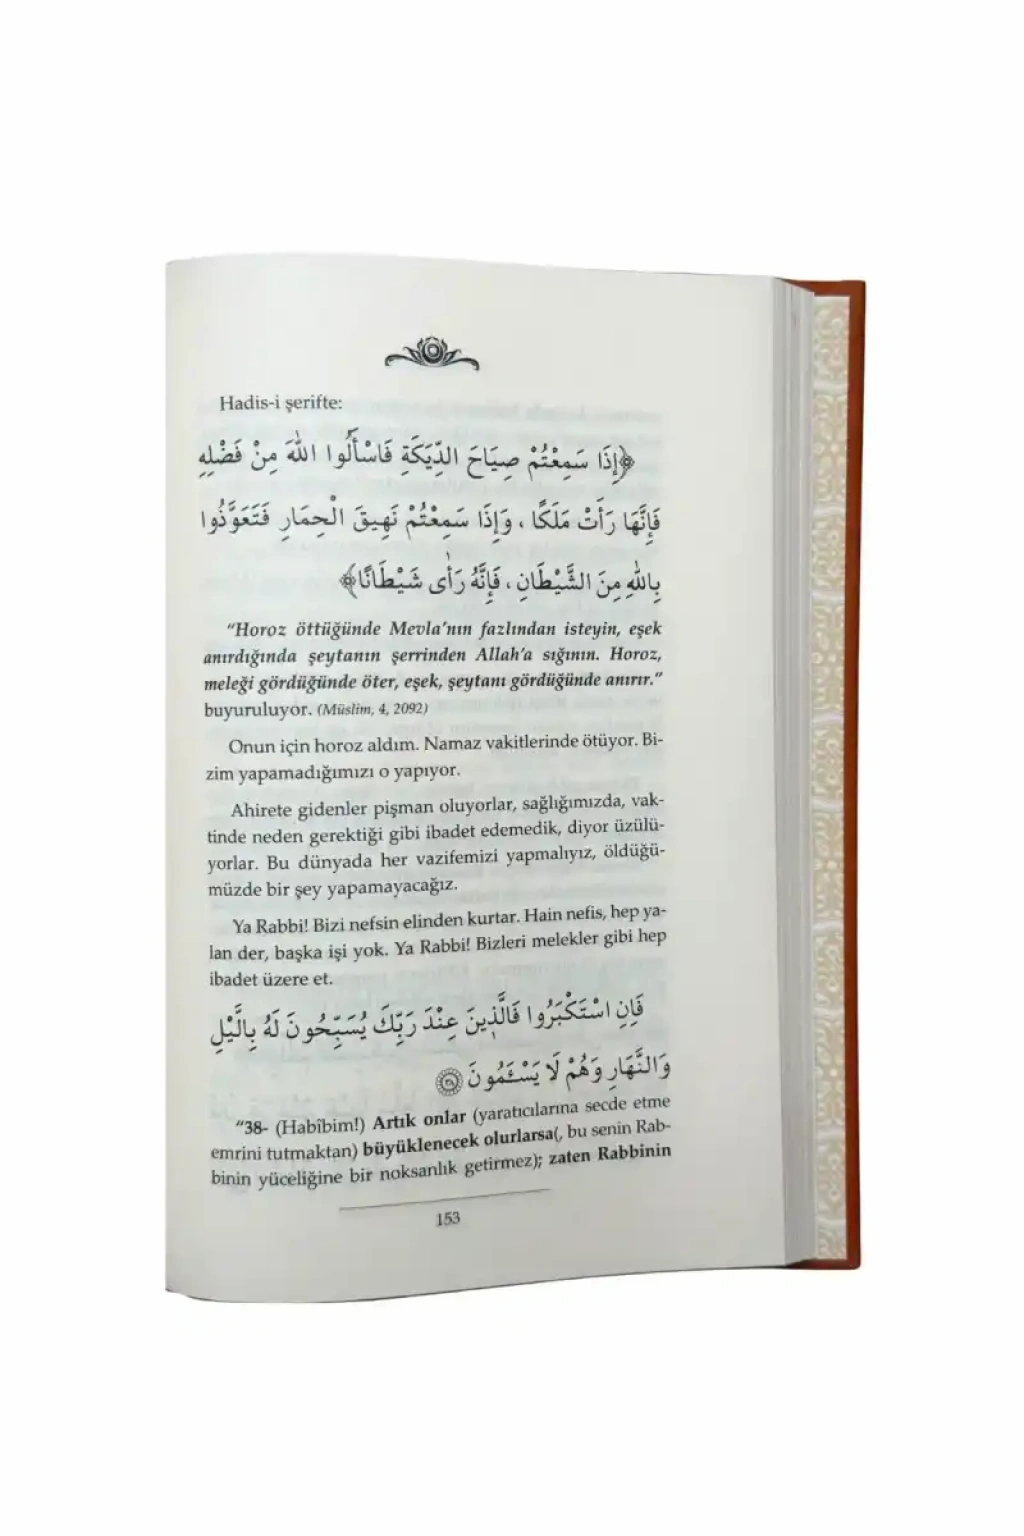 Hadis-i şerifte:
﴿إِذَا سَمِعْتُمْ صِيَاحَ الدِّيَكَةِ فَاسْأَلُوا اللّٰهَ مِنْ فَضْلِهِ
فَإِنَّهَا رَأَتْ مَلَكًا ، وَإِذَا سَمِعْتُمْ نَهِيقَ الْحِمَارِ فَتَعَوَّذُوا
بِاللّٰهِ مِنَ الشَّيْطَانِ ، فَإِنَّهُ رَأٰى شَيْطَانًا﴾
“Horoz öttüğünde Mevla’nın fazlından isteyin, eşek
anırdığında şeytanın şerrinden Allah’a sığının. Horoz,
meleği gördüğünde öter, eşek, şeytanı gördüğünde anırır.”
buyuruluyor. (Müslim, 4, 2092)
Onun için horoz aldım. Namaz vakitlerinde ötüyor. Bi-
zim yapamadığımızı o yapıyor.
Ahirete gidenler pişman oluyorlar, sağlığımızda, vak-
tinde neden gerektiği gibi ibadet edemedik, diyor üzülü-
yorlar. Bu dünyada her vazifemizi yapmalıyız, öldüğü-
müzde bir şey yapamayacağız.
Ya Rabbi! Bizi nefsin elinden kurtar. Hain nefis, hep ya-
lan der, başka işi yok. Ya Rabbi! Bizleri melekler gibi hep
ibadet üzere et.
فَاِنِ اسْتَكْبَرُوا فَالَّذِينَ عِنْدَ رَبِّكَ يُسَبِّحُونَ لَهُ بِالَّيْلِ
وَالنَّهَارِ وَهُمْ لَا يَسْـَٔمُونَ ﴿٣٨﴾
“38- (Habîbim!) Artık onlar (yaratıcılarına secde etme
emrini tutmaktan) büyüklenecek olurlarsa(, bu senin Rab-
binin yüceliğine bir noksanlık getirmez); zaten Rabbinin
153